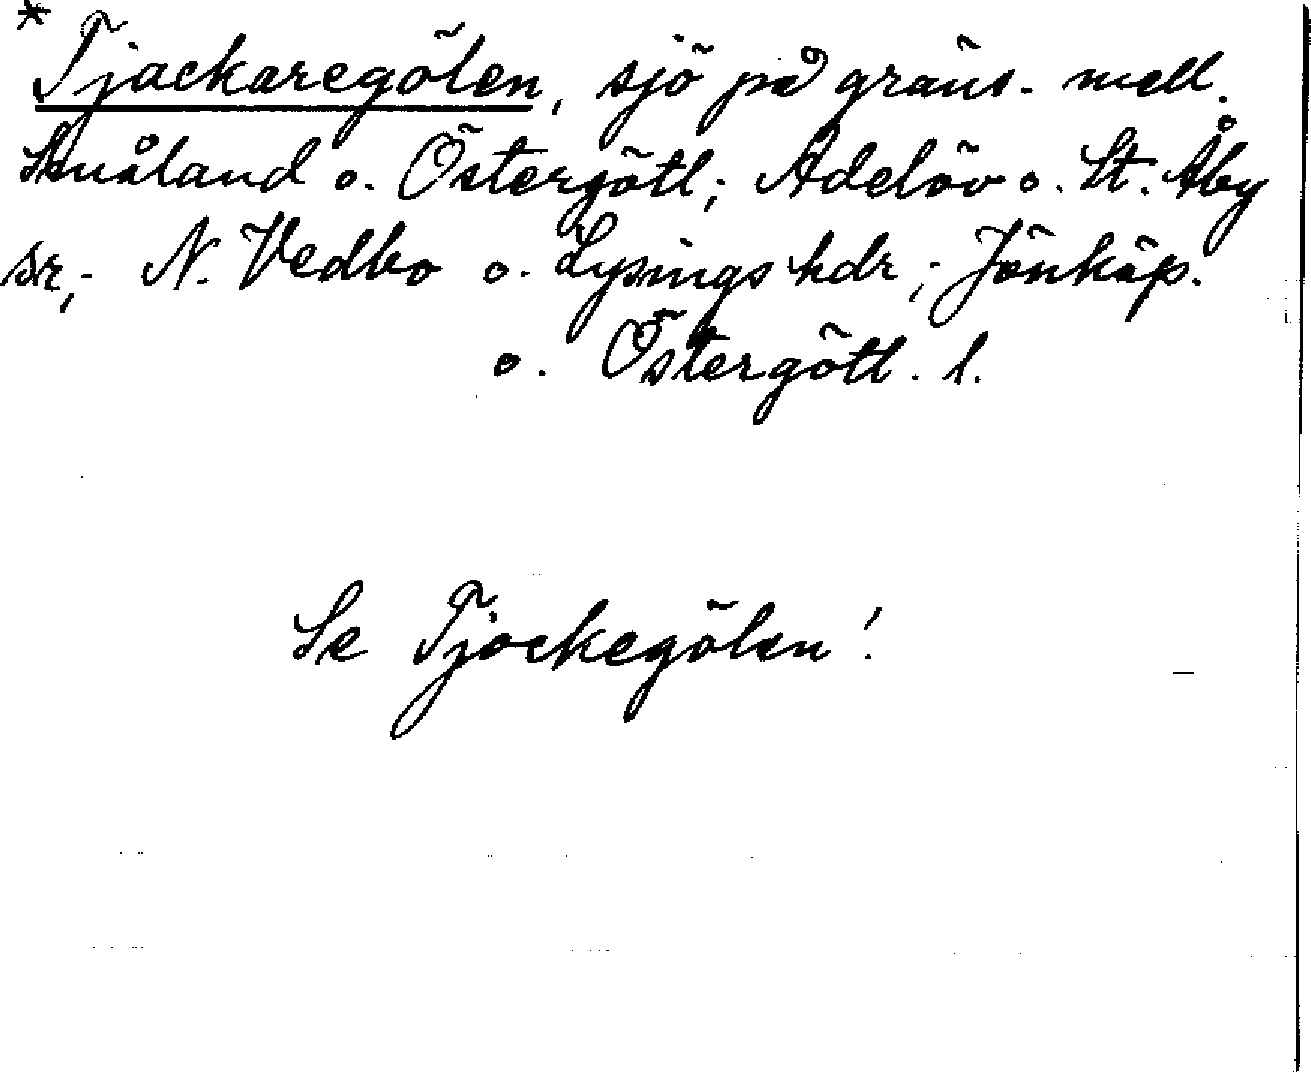 * Tjackaregölen, sjö på gräns. mell.
Småland o. Östergötl; Adelöv o. St. Åby
sr,- N. Vedbo o. Lysings hdr,- Jönköp.
o. Östergötl. l.
Se Tjockegölen!